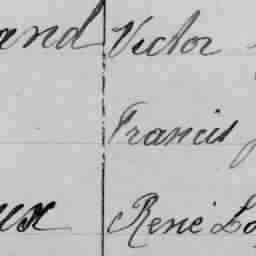 and Victor
Francis
ux René Lo